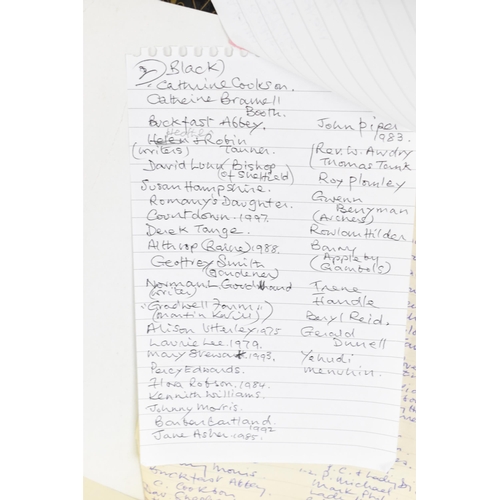 2) Black)
Catherine Cookson.
Catherine Bramwell
Booth.
Buckfast Abbey.
Heather
Helen & Robin
(writers) Tanner.
David Lunn Bishop
of Sheffield)
Susan Hampshire.
Romany's Daughter.
Countdown - 1997.
Derek Tange.
Althrop (Raine) 1988.
Geoffrey Smith
(Gardener)
Norman L Goodhand
(writer)
"Gradwell Farm"
(Martin)
Alison Uttley 1975
Laurie Lee. 1979.
Mary Stewart 1993.
Percy Edwards.
Flora Robson. 1984.
Kenneth Williams.
Johnny Morris.
Barbara Cartland.
1992
Jane Asher. 1985.
John Piper
1983.
(Rev W. Awdry
Thomas Tank
Roy Plomley
Gwenn
Berryman
(Archers)
Rowland Hilder
Barry
Appleby
(Gambols)
Irene
Handle
Beryl Reid.
Gerald
Durrell
Yehudi
Menuhin.
Morris
Buckfast Abbey
C. Cookson
P. Michael